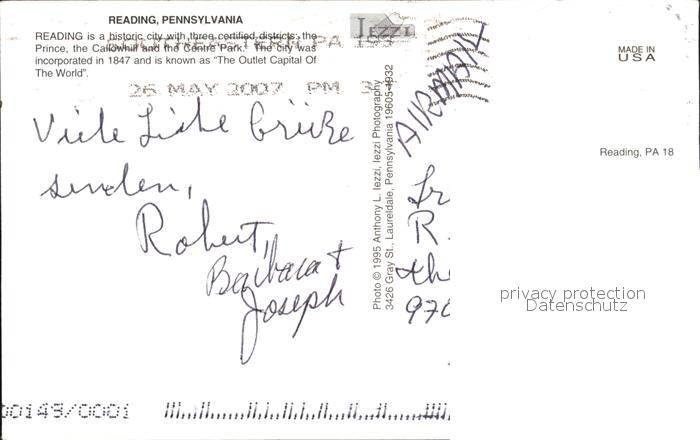 READING, PENNSYLVANIA
READING is a historic city with three certified districts: the
Prince, the Callowhill and the Centre Park. The city was
incorporated in 1847 and is known as "The Outlet Capital Of
The World".
SOUTHEASTERN PA 193
26 MAY 2007 PM
Iezzi
MADE IN
USA
Reading, PA 18
AIRMAIL
Viele Liebe Grüße
senden,
Robert,
Barbara +
Joseph
Photo © 1995 Anthony L. Iezzi, Iezzi Photography
3426 Gray St., Laureldale, Pennsylvania 19605-1932
R.
970
privacy protection
Datenschutz
00148/0001